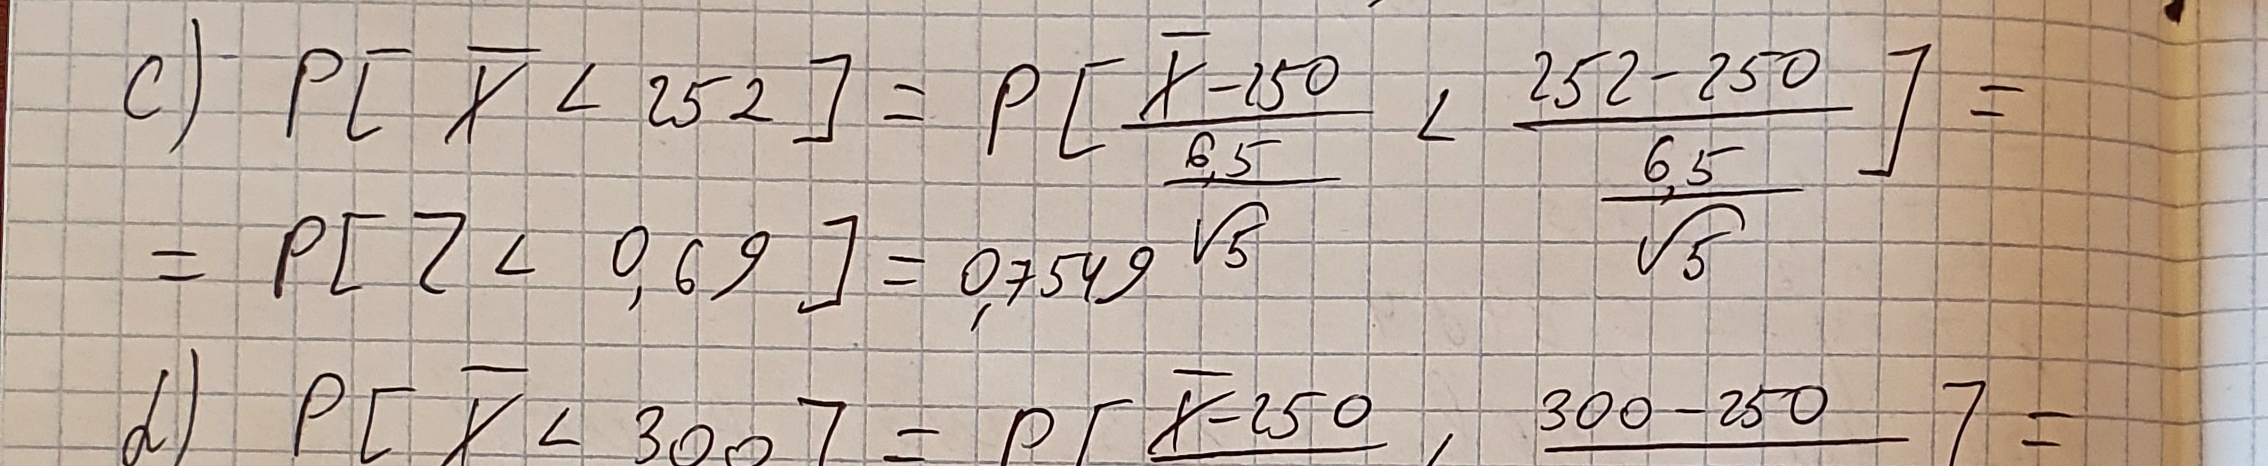 c) P[ X̄ < 252 ] = P[ (X̄ - 250) / (6,5 / √5) < (252 - 250) / (6,5 / √5) ] =
= P[ Z < 0,69 ] = 0,7549
d) P[ X̄ < 300 ] = P[ X̄ - 250 , 300 - 250 ] =